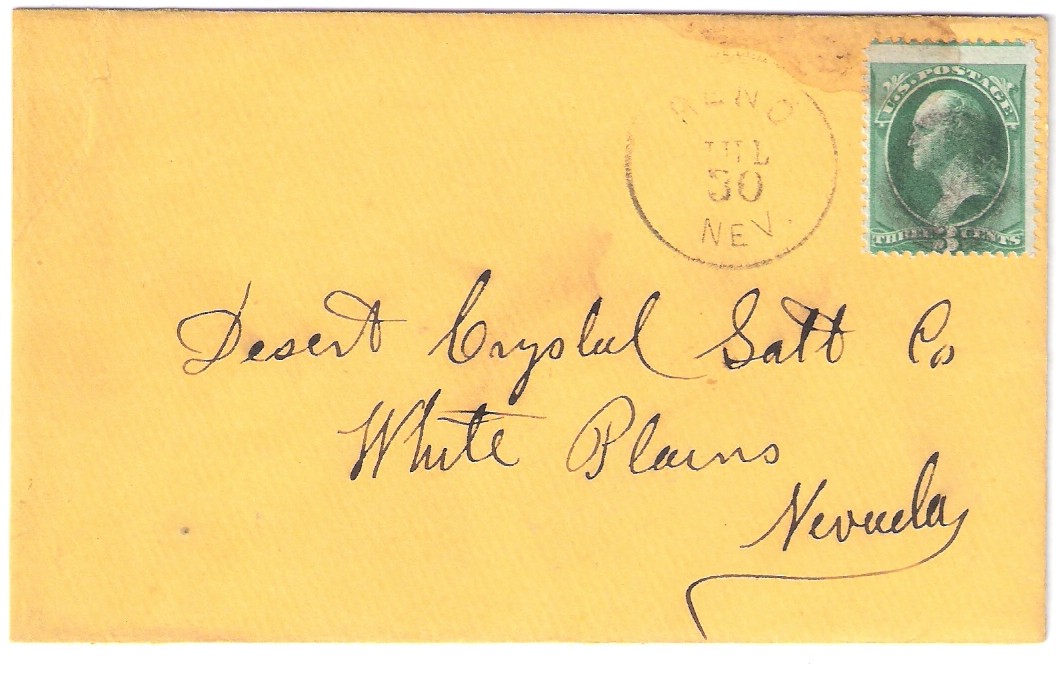 U.S. POSTAGE
THREE 3 CENTS
RENO
JUL
30
NEV.
Desert Crystal Salt Co
White Plains
Nevada